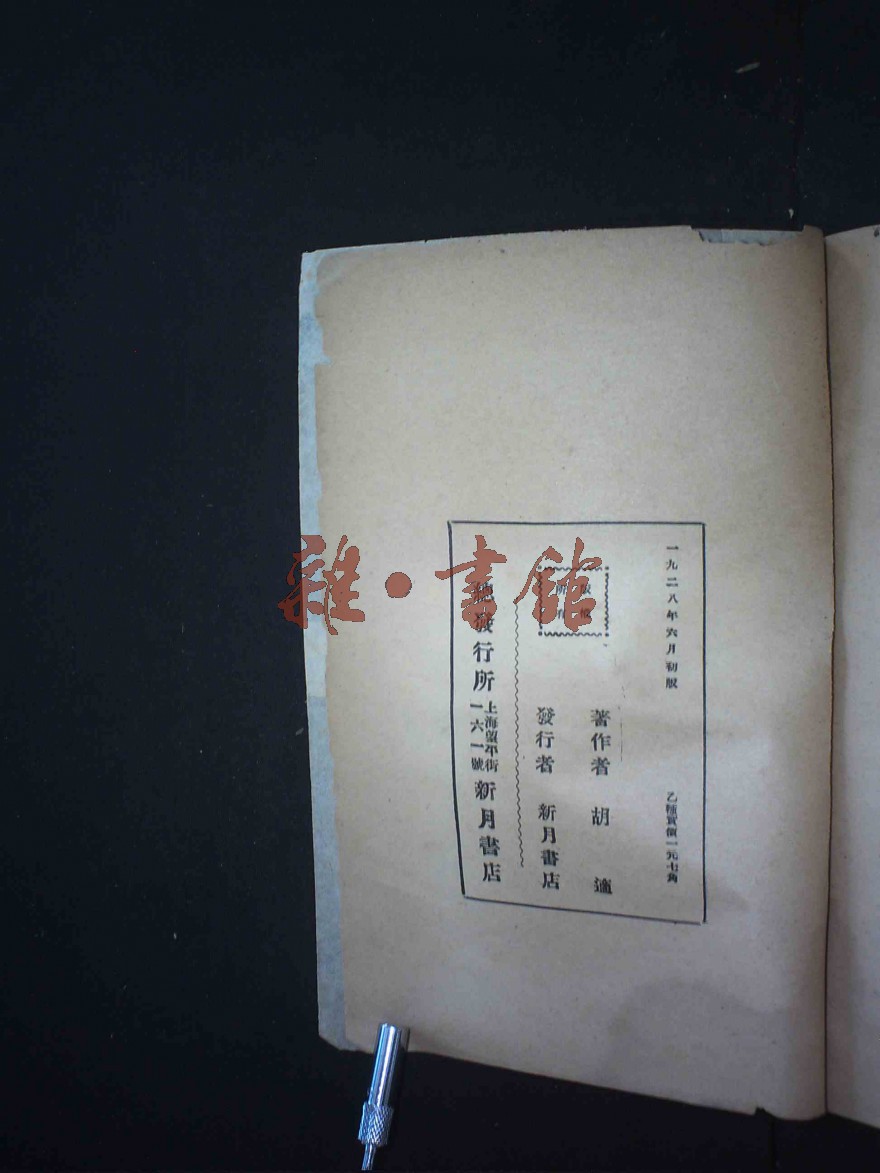 一九二八年六月初版
乙種實價一元七角
版權
所有
著作者 胡適
發行者 新月書店
總發行所 上海望平街
一六一號 新月書店
雜·書館